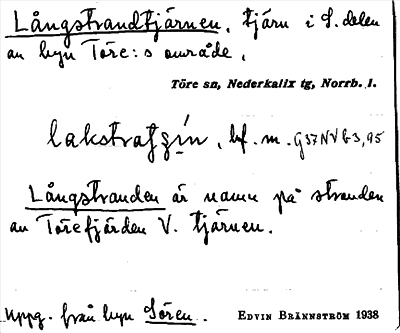 Långstrandtjärnen, tjärn i S. delen
av byn Töre:s område.
Töre sn, Nederkalix tg, Norrb. l.
bf. m.
Långstranden är namn på stranden
av Törefjärden V. tjärnen.
Uppg. från byn Sören. EDVIN BRÄNNSTRÖM 1938